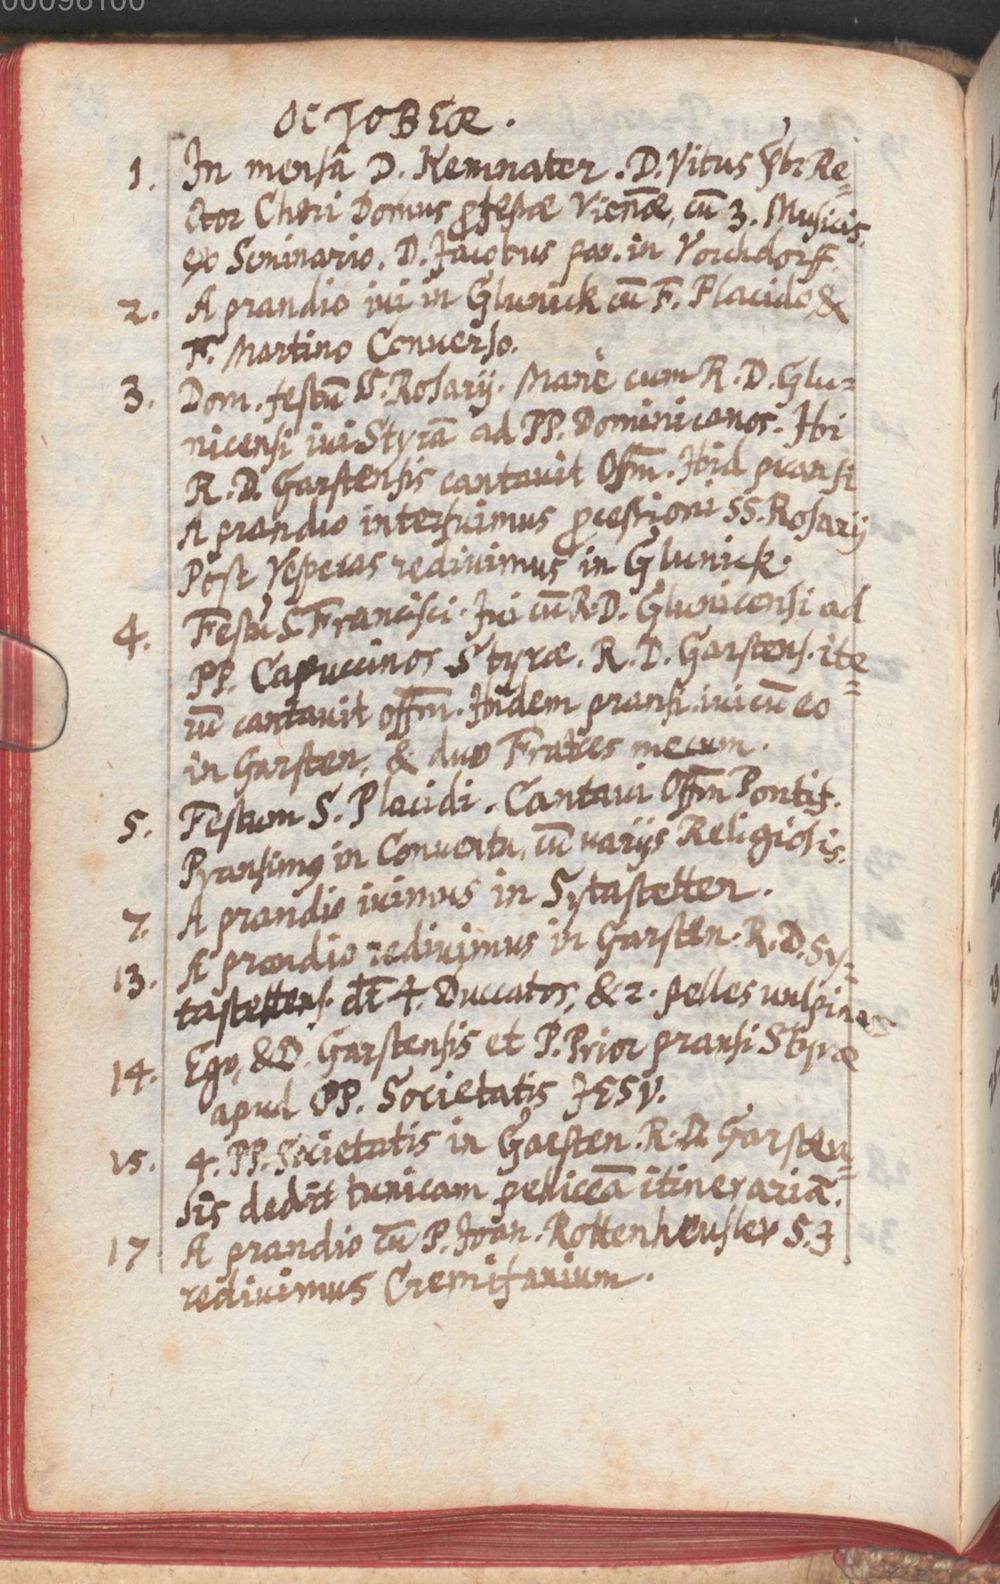 00096100
OCTOBER.
1. In mensâ D. Kemnater. D. Vitus Re=
ctor Chori Domus pfessæ Vieñæ, cũ 3. Musicis
ex Seminario. D. Jacobus par. in Vorchdorff.
2. A prandio ivi in Glunick cũ F. Placido &
F. Martino Converso.
3. Dom. festũ SS. Rosarij. Manè cum R. D. Glu=
nicensi ivi Styrã ad PP. Dominicanos. Ibi
R. D. Garstensis cantavit Offm. Ibid pransi
A prandio interfuimus pcessioni SS. Rosarij
Post Vesperas redivimus in Glunick.
4. Festũ S. Francisci. Ivi cũ R. D. Glunicensi ad
PP. Capuccinos Styræ. R. D. Garstens. ite=
rũ cantavit offm. Ibidem pransi ivi cũ eo
in Garsten, & duo Fratres mecum.
5. Festum S. Placidi. Cantavi Offm Pontif.
Pransimq in Conventu, cũ varijs Religiosis.
7. A prandio ivimus in Sytastetten.
13. A prandio redivimus in Garsten. R. D. Sy=
tastettens. dt 4. Duccatos, & 2. pelles vulpinas
14. Ego, & D. Garstensis et P. Prior pransi Styræ
apud PP. Societatis JESV.
15. 4. PP. Societatis in Garsten. R. D. Garsten=
sis dedit tunicam pelliceã itinerariã.
17 A prandio cũ P. Joan. Rottenheusler S. J
redivimus Cremifanium.